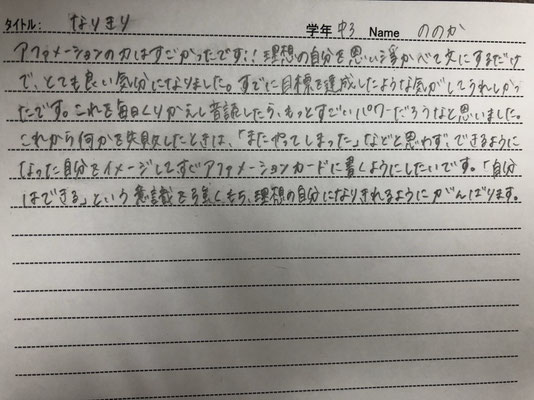 タイトル: なりきり 学年 中3 Name ののか
アファメーションの力はすごかったです!! 理想の自分を思い浮かべて文にするだけ
で、とても良い気分になりました。すでに目標を達成したような気がしてうれしかっ
たです。これを毎日くりかえし音読したら、もっとすごいパワーだろうなと思いました。
これから何かを失敗したときは、「またやってしまった」などと思わず、できるように
なった自分をイメージして、すぐアファメーションカードに書くようにしたいです。「自分
はできる」という意識を強くもち、理想の自分になりきれるようにがんばります。